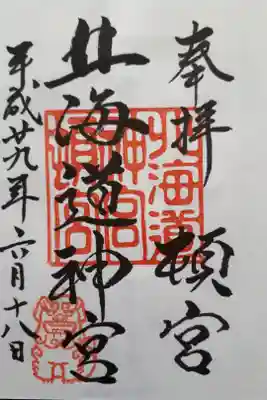 奉拝 頓宮
北海道神宮
平成廿九年六月十八日
北海道
神宮
頓宮